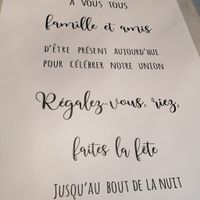 À VOUS TOUS
famille et amis
D'ÊTRE PRÉSENT AUJOURD'HUI
POUR CÉLÉBRER NOTRE UNION
Régalez-vous, riez,
faites la fête
JUSQU'AU BOUT DE LA NUIT